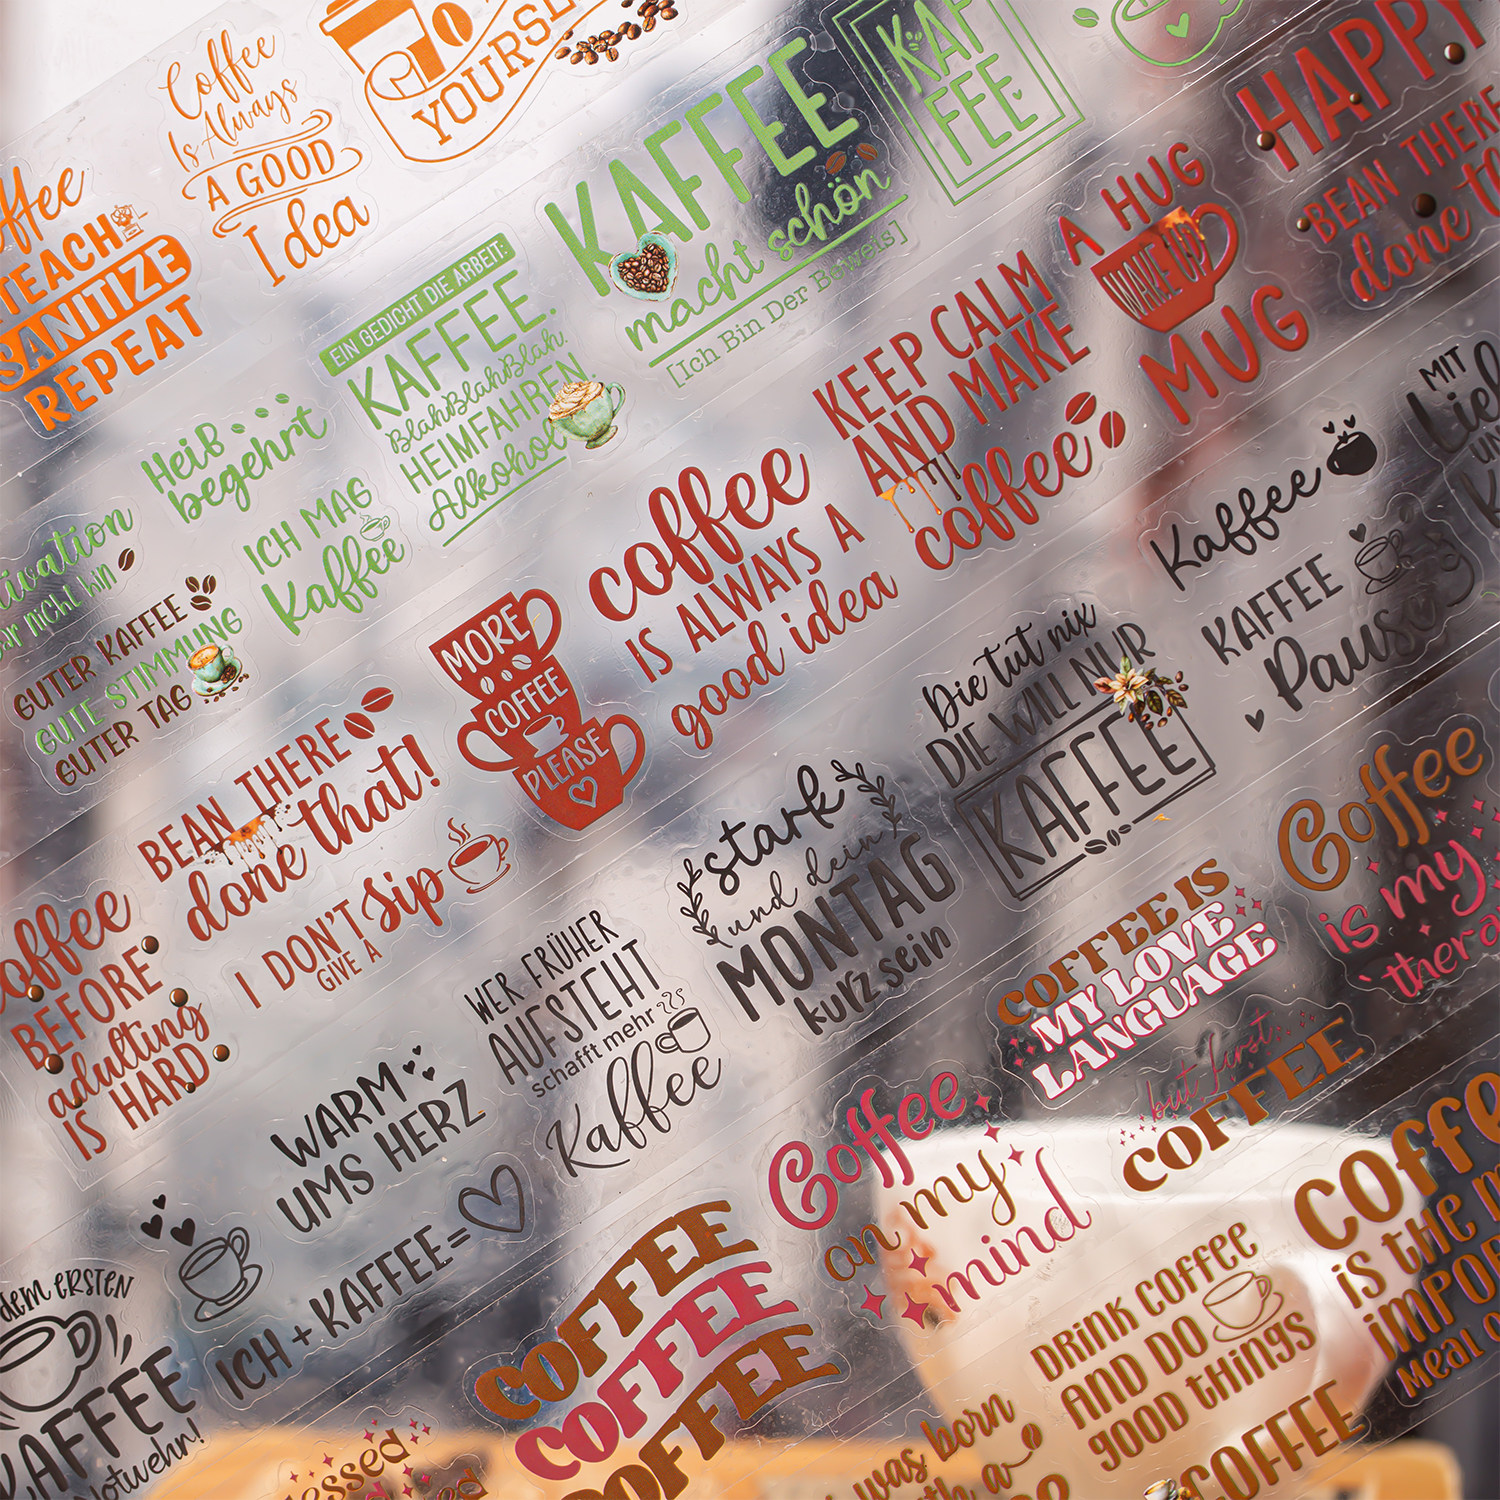 Coffee
Is Always
A GOOD
Idea
YOURSELF
TEACH
SANITIZE
REPEAT
KAFFEE
macht schön
[Ich Bin Der Beweis]
KAF
FEE
HAPPY
BEAN THERE
done
EIN GEDICHT DIE ARBEIT:
KAFFEE.
BlahBlahBlah.
HEIMFAHREN.
Alkohol
Heiß
begehrt
ICH MAG
Kaffee
nicht hin
GUTER KAFFEE
GUTE STIMMUNG
GUTER TAG
A HUG
WAKE UP
MUG
KEEP CALM
AND MAKE
coffee
coffee
IS ALWAYS A
good idea
MORE
COFFEE
PLEASE
BEAN THERE
done that!
I DON'T
GIVE A
Sip
coffee
BEFORE
adulting
IS HARD
MIT
Kaffee
KAFFEE
Pause
Die tut nix
DIE WILL NUR
KAFFEE
stark
und dein
MONTAG
kurz sein
WER FRÜHER
AUFSTEHT
schafft mehr
Kaffee
WARM
UMS HERZ
ICH + KAFFEE =
dem ERSTEN
KAFFEE
Notwehr!
Coffee
is my
COFFEE IS
MY LOVE
LANGUAGE
but first,
COFFEE
Coffee
on my
mind
COFFEE
COFFEE
COFFEE
DRINK COFFEE
AND DO
GOOD THINGS
COFFEE
is the
meal
was born
COFFEE